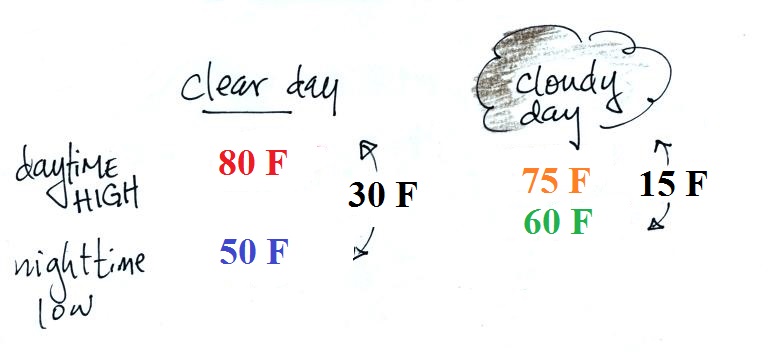 clear day
cloudy
day
daytime
HIGH
80 F
30 F
75 F
15 F
60 F
nighttime
low
50 F